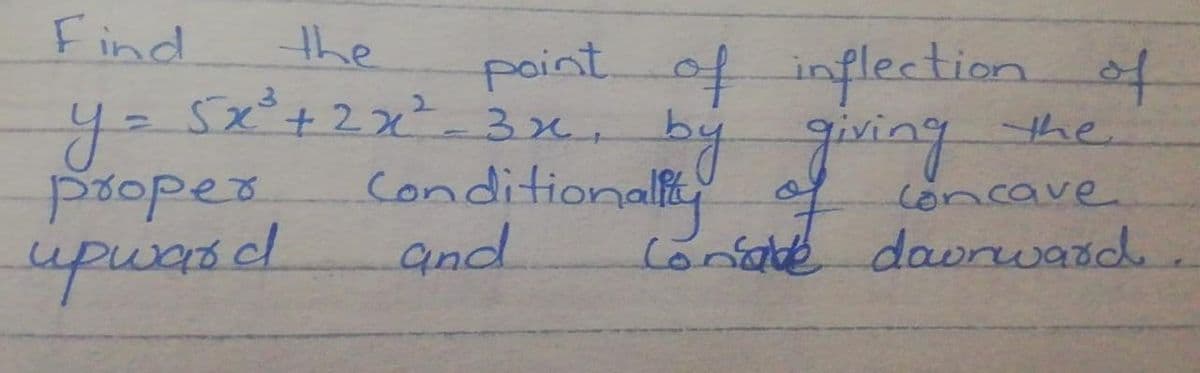 Find the point of inflection of
y = 5x³ + 2x² - 3x, by giving the
proper conditionality of concave
upward and concave daonward.